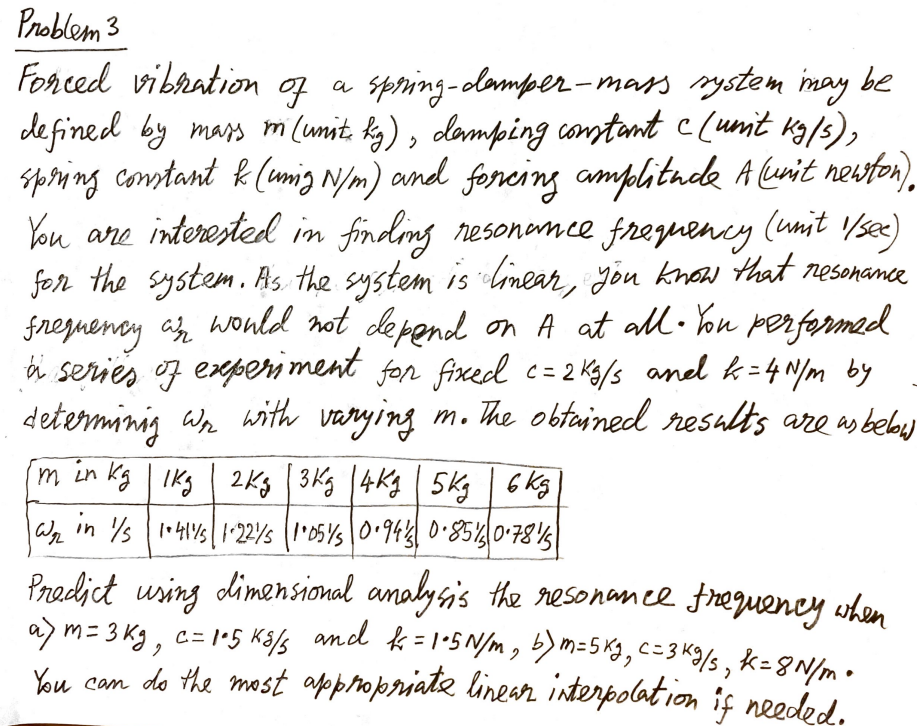 Problem 3
Forced vibration of a spring-damper-mass system may be
defined by mass m (unit kg), damping constant c (unit kg/s),
spring constant k (unig N/m) and forcing amplitude A (unit newton).
You are interested in finding resonance frequency (unit 1/sec)
for the system. As the system is linear, you know that resonance
frequency ωr would not depend on A at all. You performed
a series of experiment for fixed c = 2 Kg/s and k = 4 N/m by
determinig ωr with varying m. The obtained results are as below
m in kg | 1Kg | 2Kg | 3Kg | 4Kg | 5Kg | 6 Kg
ωr in 1/s | 1.41 1/s | 1.22 1/s | 1.05 1/s | 0.94 1/s | 0.85 1/s | 0.78 1/s
Predict using dimensional analysis the resonance frequency when
a) m = 3 Kg, c = 1.5 Kg/s and k = 1.5 N/m, b) m = 5 Kg, c = 3 Kg/s, k = 8 N/m.
You can do the most appropriate linear interpolation if needed.